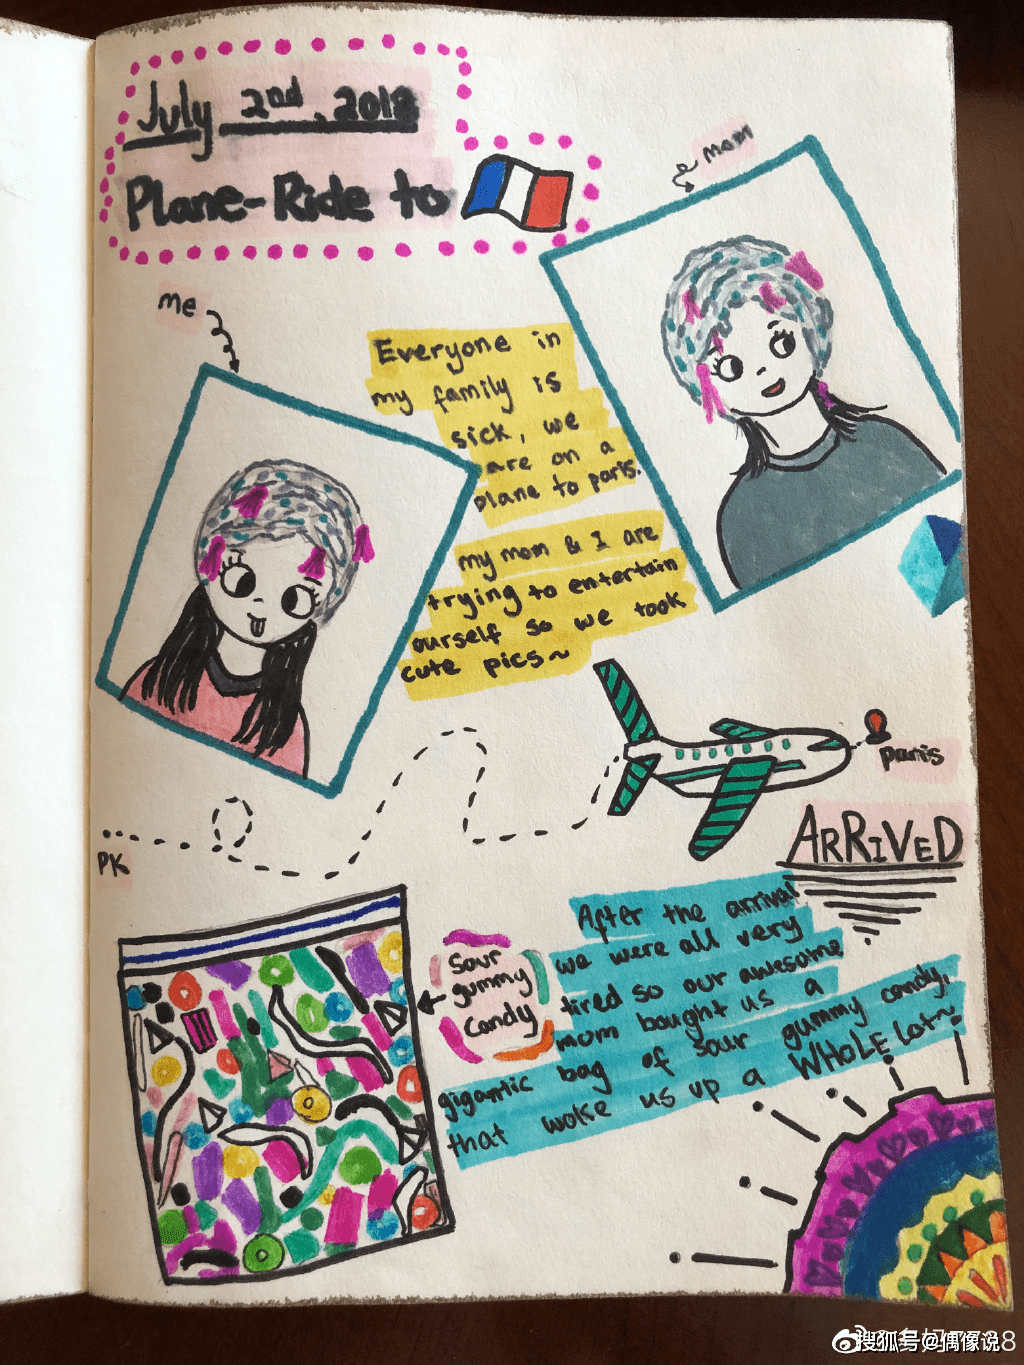 July 2nd, 2018
Plane-Ride to
mom
me
Everyone in
my family is
sick, we
are on a
plane to paris.
my mom & I are
trying to entertain
ourself so we took
cute pics~
paris
ARRIVED
PK
After the arrival
we were all very
tired so our awesome
mom bought us a
gigantic bag of sour gummy candy,
that woke us up a WHOLE lot~
Sour
gummy
Candy
搜狐号@偶像说